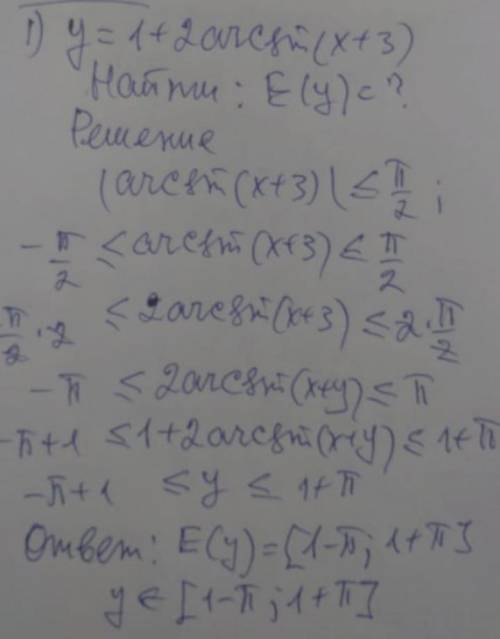 1) y = 1 + 2 arcsin(x+3)
Найти : E(y) = ?
Решение
|arcsin(x+3)| ≤ π/2 ;
-π/2 ≤ arcsin(x+3) ≤ π/2
π/2 · 2 ≤ 2 arcsin(x+3) ≤ 2 · π/2
-π ≤ 2 arcsin(x+y) ≤ π
-π+1 ≤ 1 + 2 arcsin(x+y) ≤ 1+π
-π+1 ≤ y ≤ 1+π
Ответ: E(y) = [1-π; 1+π]
y ∈ [1-π; 1+π]